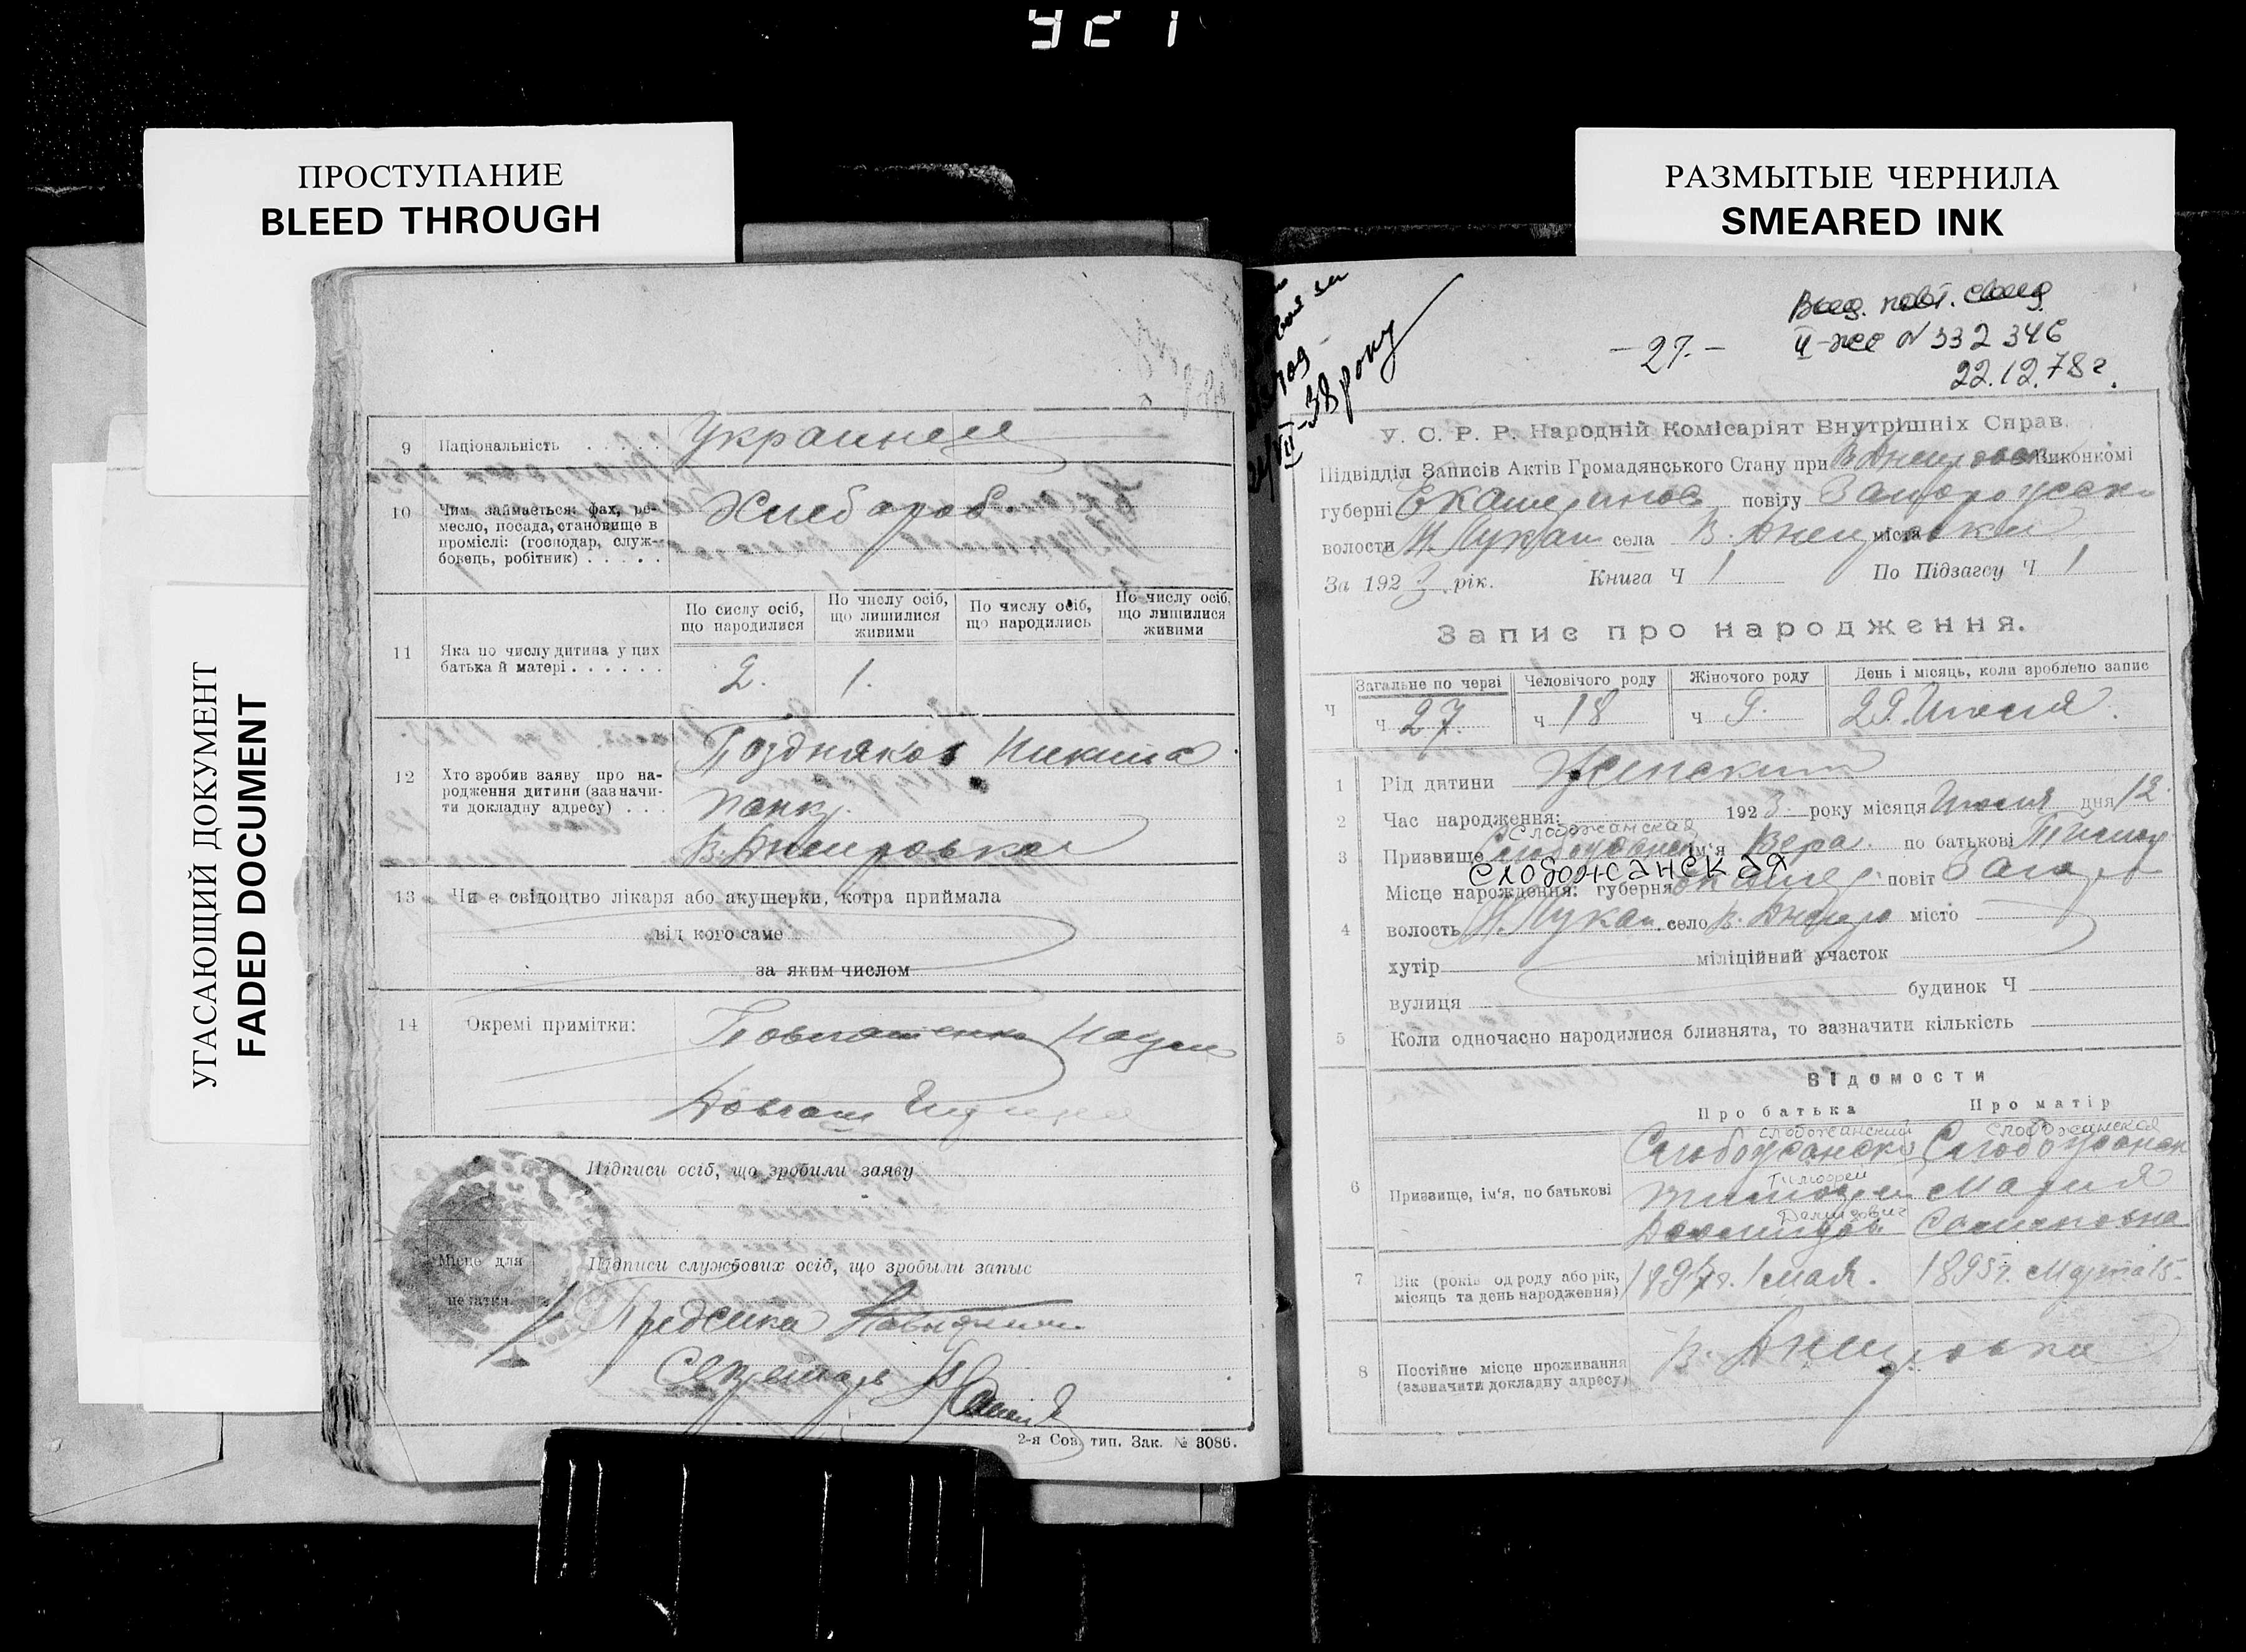 921
ПРОСТУПАНИЕ
BLEED THROUGH
УГАСАЮЩИЙ ДОКУМЕНТ
FADED DOCUMENT
9 Національність . . . . . Украинец
10 Чим займається: фах, ре-
месло, посада, становище в
промислі: (господар, служ-
бовець, робітник) . . . . . Хлебороб
По сислу осіб,
що народилися
По числу осіб,
що лишилися
живими
По числу осіб,
що народились
По числу осіб,
що лишилися
живими
11 Яка по числу дитина у цих
батька й матері . . . . . . 2. 1.
12 Хто зробив заяву про на-
родження дитини (зазначи-
ти докладну адресу) . . . Поздняков Никита
В. Днепровка
13 Чи є свідоцтво лікаря або акушерки, котра приймала
від кого саме
за яким числом
14 Окремі примітки:
Підписи осіб, що зробили заяву
Місце для
печатки
Підписи службових осіб, що зробыли запыс
Предсика
Секретарь
2-я Сов. тип. Зак. № 3086.
РАЗМЫТЫЕ ЧЕРНИЛА
SMEARED INK
38 року
-27.-
Выд. повт. свид.
II-ЖС № 332346
22.12.78г.
У. С. Р. Р. Народній Комісаріят Внутрішніх Справ.
Підвідділ Записів Актів Громадянського Стану при В Днепровск Виконкомі
губерні Екатеринос повіту Запорожск
волости М. Лукаш села В. Днепровки міста
За 1923 рік. Книга Ч 1 По Підзагсу Ч 1
Запис про народження.
Загальне по черві Человічого роду Жіночого роду День і місяць, коли зроблено запис
Ч ч 27. ч 18 ч 9. 29. Июля.
1 Рід дитини Женский
2 Час народження: 1923 року місяця Июля дня 12
Слобожанская
3 Призвище ім'я Вера. по батькові Тимоф
Слобожанская
Місце нарождення: губерня Екатер повіт Запор
4 волость М. Лукаш. село В. Днепро місто
хутір міліційний участок
вулиця будинок Ч
5 Коли одночасно народилися близнята, то зазначити кількість
Відомости
Про батька Про матір
Слобожанский Слобожанская
Слобожанск Слобожанск
6 Призвище, ім'я, по батькові
Тимофей
Тимофей Мария
Демидович
Демидов Семеновна
7 Вік (років од роду або рік,
місяць та день народження) 1897г. 1 мая. 1895г. Марта 15.
8 Постійне місце проживання
(зазначити докладну адресу) В. Днепровка